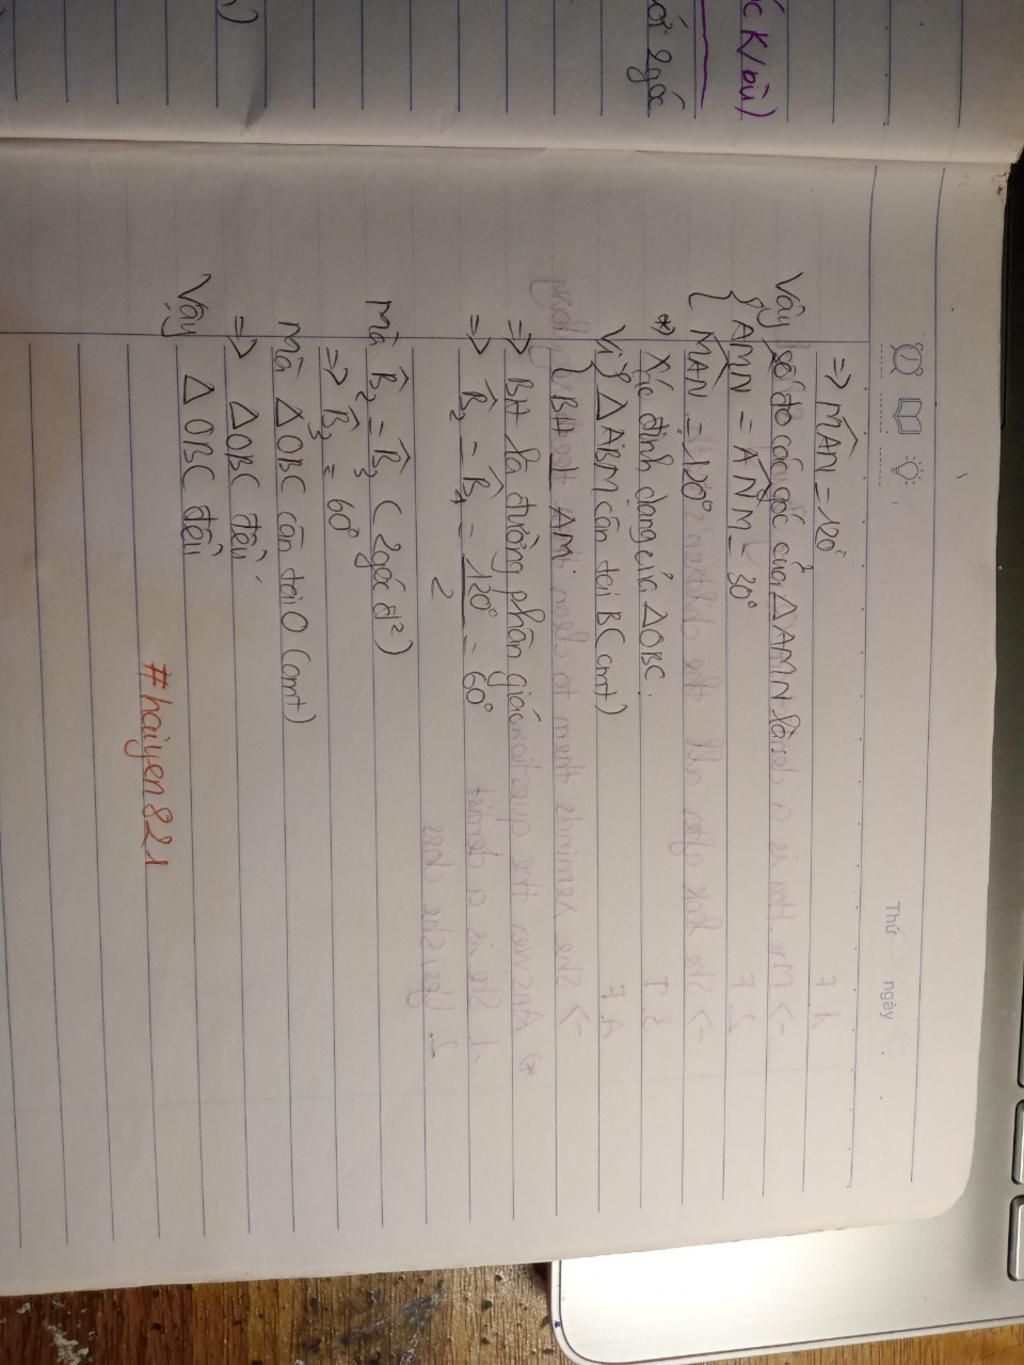 ốc K/bù)
ối 2 góc
Thứ
ngày
=> M̂AN = 120°
Vậy số đo các góc của △AMN là
{ AMN = ANM = 30°
MAN = 120°
*) Xác định dạng của △OBC.
Vì { △ABM cân tại B (cmt)
BH ⊥ AM
=> BH là đường phân giác
=> B̂₂ = B̂₁ = 120°/2 = 60°
Mà B̂₂ = B̂₃ ( 2 góc đ²)
=> B̂₃ = 60°
Mà △OBC cân tại O (cmt)
=> △OBC đều
Vậy △OBC đều
#haiyen821